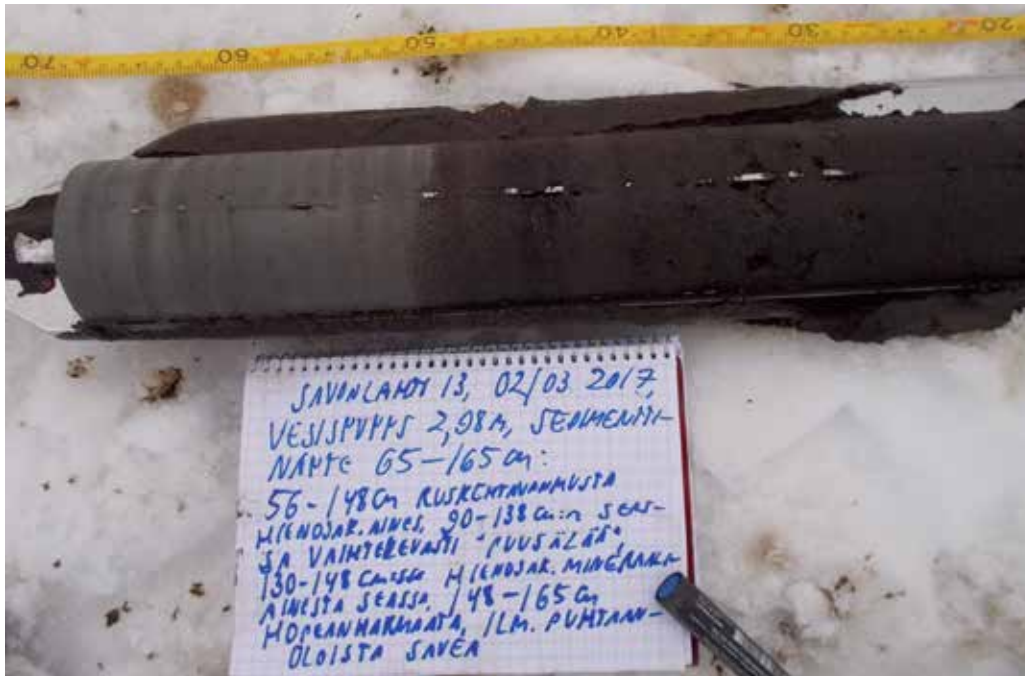 70 60 50 40 30 20
SAVONLAHTI 13, 02/03 2017,
VESISYVYYS 2,98 m, SEDIMENTTI-
NÄYTE 65-165 cm:
56-148 cm RUSKEHTAVANMUSTA
HIENOJAK. AINES, 90-138 cm:n SEAS-
SA VAIHTELEVASTI "PUUSÄLÄÄ",
130-148 cm:ssä HIENOJAK. MINERAALI-
AINESTA SEASSA, 148-165 cm
HOPEANHARMAATA, ILM. PUHTAAN-
OLOISTA SAVEA